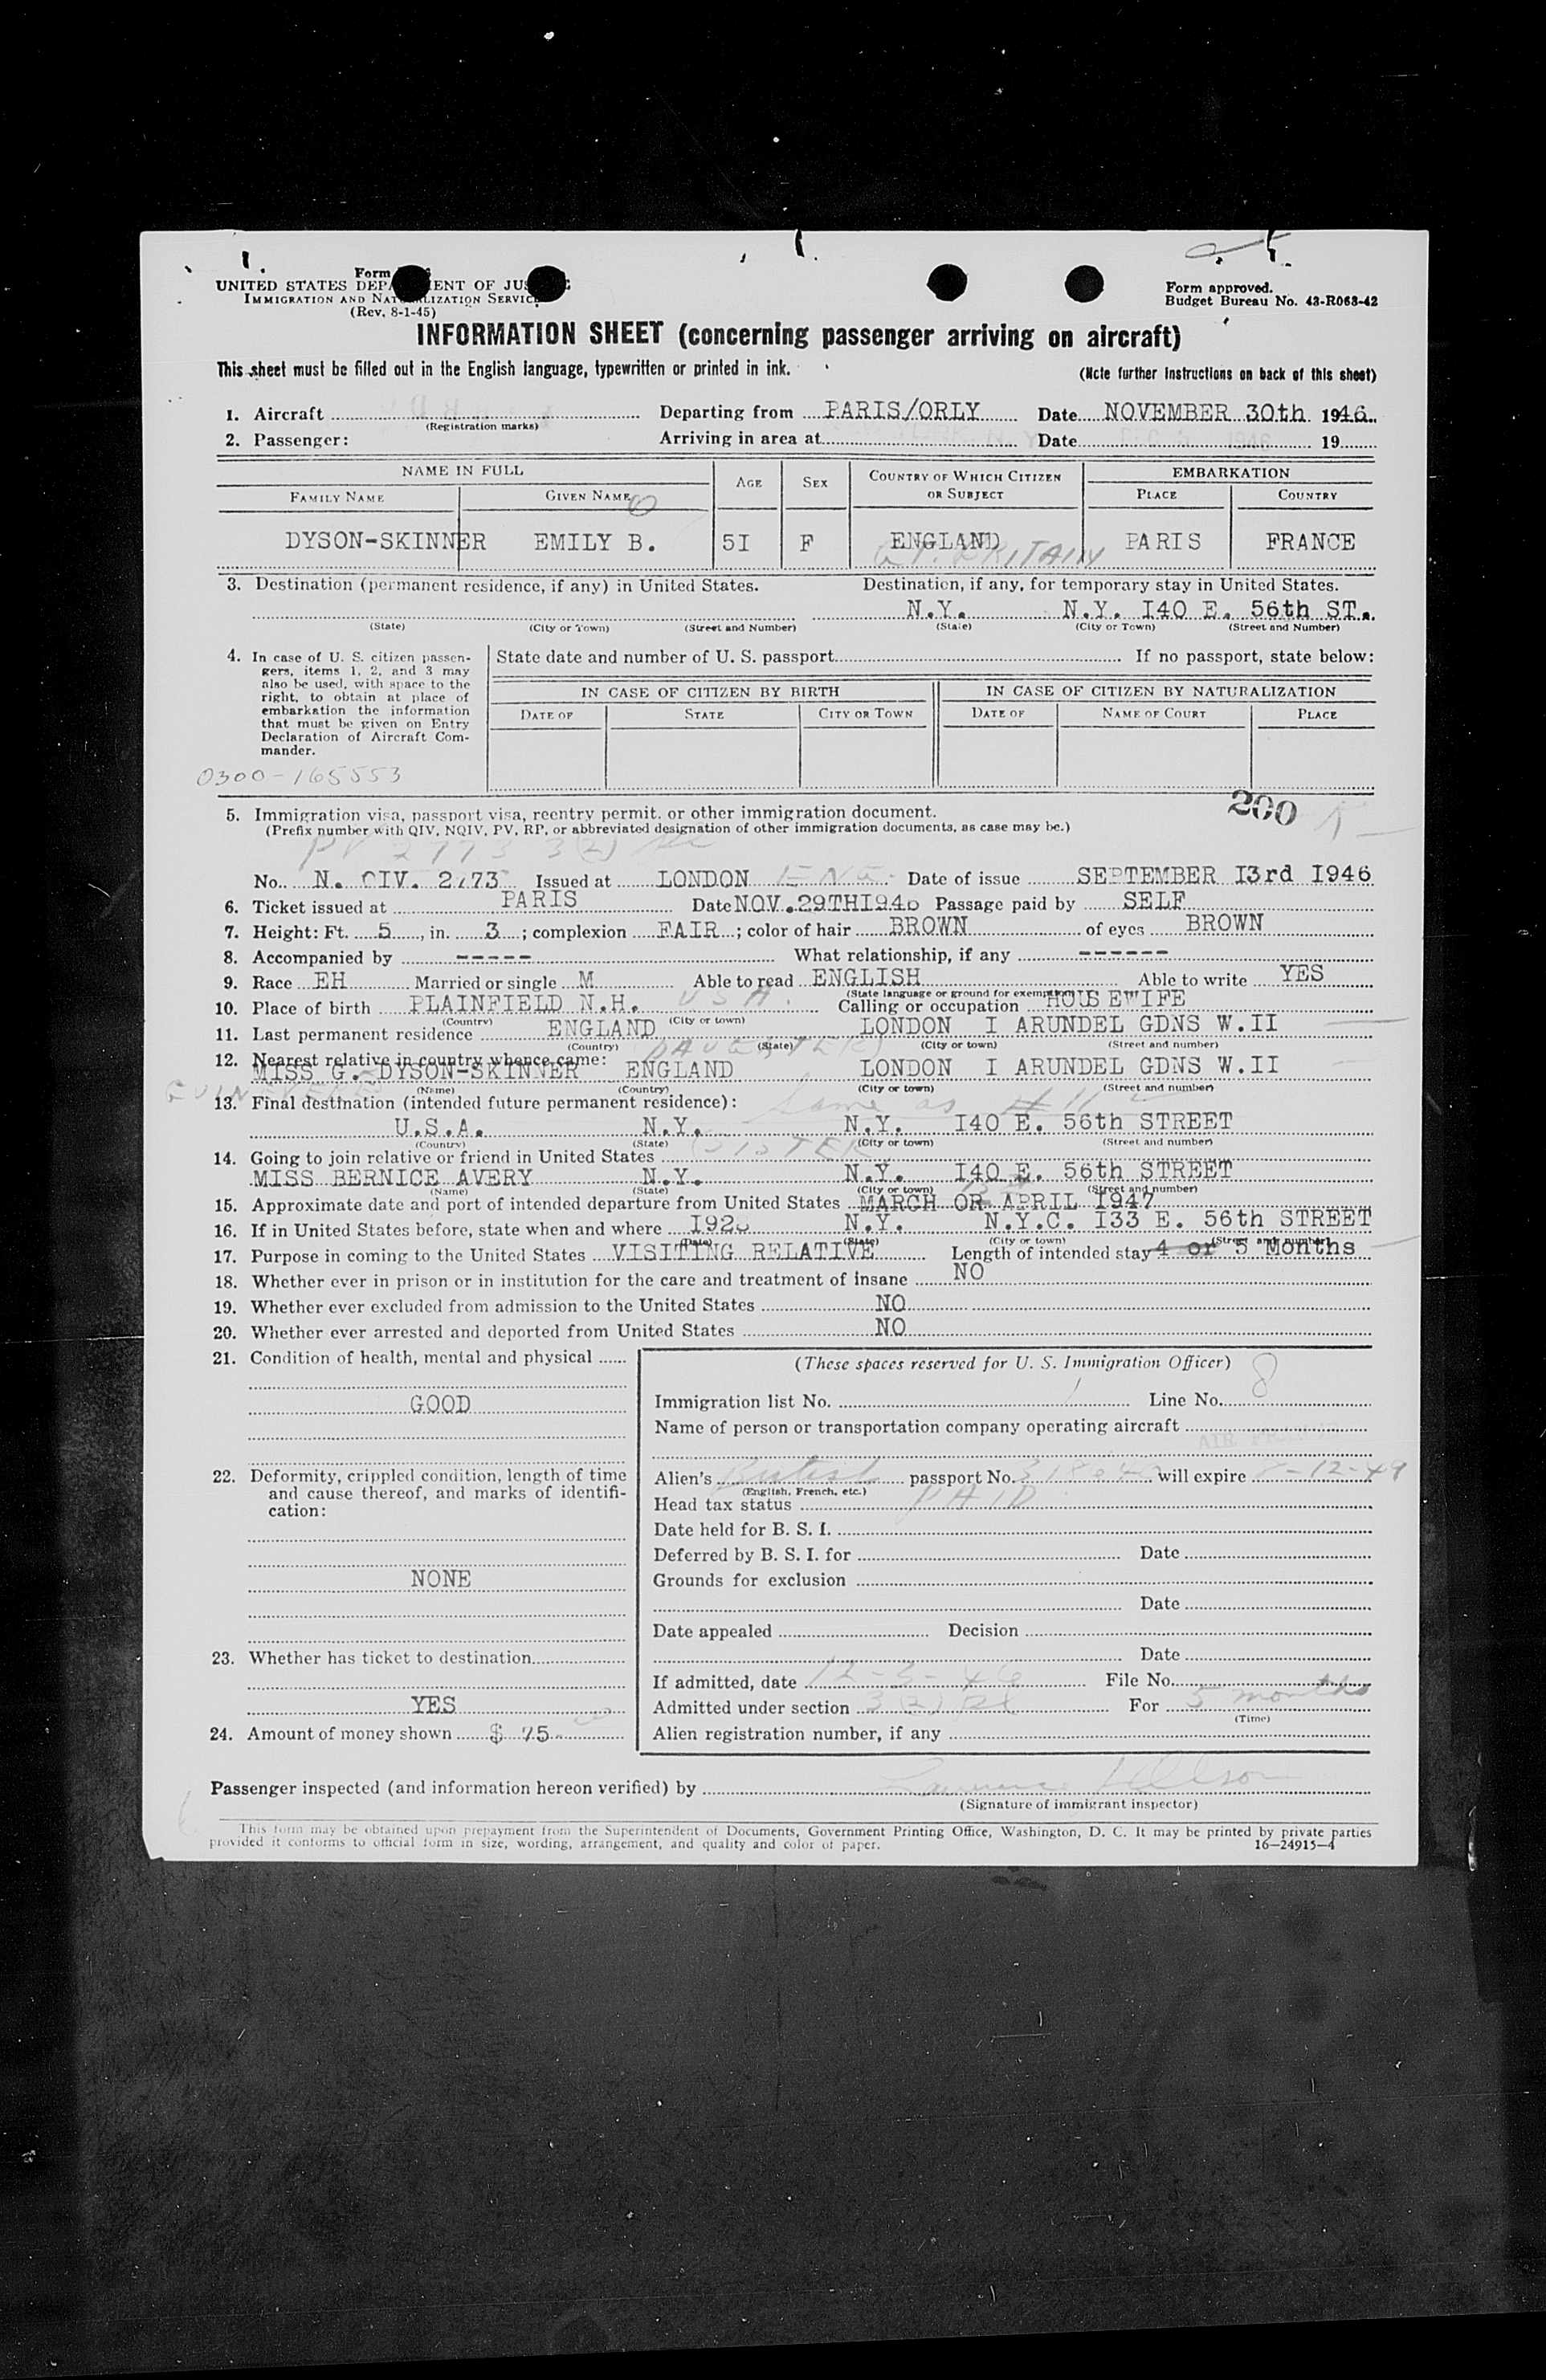 Form
UNITED STATES DEP ENT OF JUS
IMMIGRATION AND NATURALIZATION SERVICE
(Rev. 8-1-45)
Form approved.
Budget Bureau No. 43-R063-42
INFORMATION SHEET (concerning passenger arriving on aircraft)
This sheet must be filled out in the English language, typewritten or printed in ink.
(Note further instructions on back of this sheet)
1. Aircraft Departing from PARIS/ORLY Date NOVEMBER 30th 1946
(Registration marks)
2. Passenger: Arriving in area at Date 19
NAME IN FULL AGE SEX COUNTRY OF WHICH CITIZEN OR SUBJECT EMBARKATION
FAMILY NAME GIVEN NAME PLACE COUNTRY
DYSON-SKINNER EMILY B. 5I F ENGLAND PARIS FRANCE
GT. BRITAIN
3. Destination (permanent residence, if any) in United States. Destination, if any, for temporary stay in United States.
N.Y. N.Y. I40 E. 56th ST.
(State) (City or Town) (Street and Number) (State) (City or Town) (Street and Number)
4. In case of U. S. citizen passengers, items 1, 2, and 3 may also be used, with space to the right, to obtain at place of embarkation the information that must be given on Entry Declaration of Aircraft Commander.
State date and number of U. S. passport If no passport, state below:
IN CASE OF CITIZEN BY BIRTH IN CASE OF CITIZEN BY NATURALIZATION
DATE OF STATE CITY OR TOWN DATE OF NAME OF COURT PLACE
0300-165553
200
5. Immigration visa, passport visa, reentry permit, or other immigration document.
(Prefix number with QIV, NQIV, PV, RP, or abbreviated designation of other immigration documents, as case may be.)
PV 2773 3(2)
No. N. QIV. 2773 Issued at LONDON ENG. Date of issue SEPTEMBER I3rd I946
6. Ticket issued at PARIS Date NOV. 29TH I946 Passage paid by SELF
7. Height: Ft. 5, in. 3; complexion FAIR; color of hair BROWN of eyes BROWN
8. Accompanied by ----- What relationship, if any ------
9. Race EH Married or single M Able to read ENGLISH Able to write YES
(State language or ground for exemption)
10. Place of birth PLAINFIELD N.H. USA. Calling or occupation HOUSEWIFE
(Country) (City or town)
11. Last permanent residence ENGLAND LONDON I ARUNDEL GDNS W.II
(Country) (State) (City or town) (Street and number)
12. Nearest relative in country whence came: DAUGHTER
MISS G. DYSON-SKINNER ENGLAND LONDON I ARUNDEL GDNS W.II
(Name) (Country) (City or town) (Street and number)
13. Final destination (intended future permanent residence): Same as #11
U.S.A. N.Y. N.Y. I40 E. 56th STREET
(Country) (State) (City or town) (Street and number)
14. Going to join relative or friend in United States (SISTER
MISS BERNICE AVERY N.Y. N.Y. I40 E. 56th STREET
(Name) (State) (City or town) (Street and number)
15. Approximate date and port of intended departure from United States MARCH OR APRIL I947
16. If in United States before, state when and where N.Y. N.Y.C. I33 E. 56th STREET
(Date) (State) (City or town) (Street and number)
17. Purpose in coming to the United States VISITING RELATIVE Length of intended stay 4 or 5 Months
18. Whether ever in prison or in institution for the care and treatment of insane NO
19. Whether ever excluded from admission to the United States NO
20. Whether ever arrested and deported from United States NO
21. Condition of health, mental and physical
GOOD
22. Deformity, crippled condition, length of time and cause thereof, and marks of identification:
NONE
23. Whether has ticket to destination
YES
24. Amount of money shown $ 75.
(These spaces reserved for U. S. Immigration Officer)
Immigration list No. 1 Line No. 8
Name of person or transportation company operating aircraft
AIR FRANCE
Alien's British passport No. will expire 8-12-49
(English, French, etc.)
Head tax status PAID
Date held for B. S. I.
Deferred by B. S. I. for Date
Grounds for exclusion
Date
Date appealed Decision
Date
If admitted, date 12-3-46 File No.
Admitted under section 3(2) For 5 months
(Time)
Alien registration number, if any
Passenger inspected (and information hereon verified) by
(Signature of immigrant inspector)
This form may be obtained upon prepayment from the Superintendent of Documents, Government Printing Office, Washington, D. C. It may be printed by private parties
provided it conforms to official form in size, wording, arrangement, and quality and color of paper.
16—24915-4